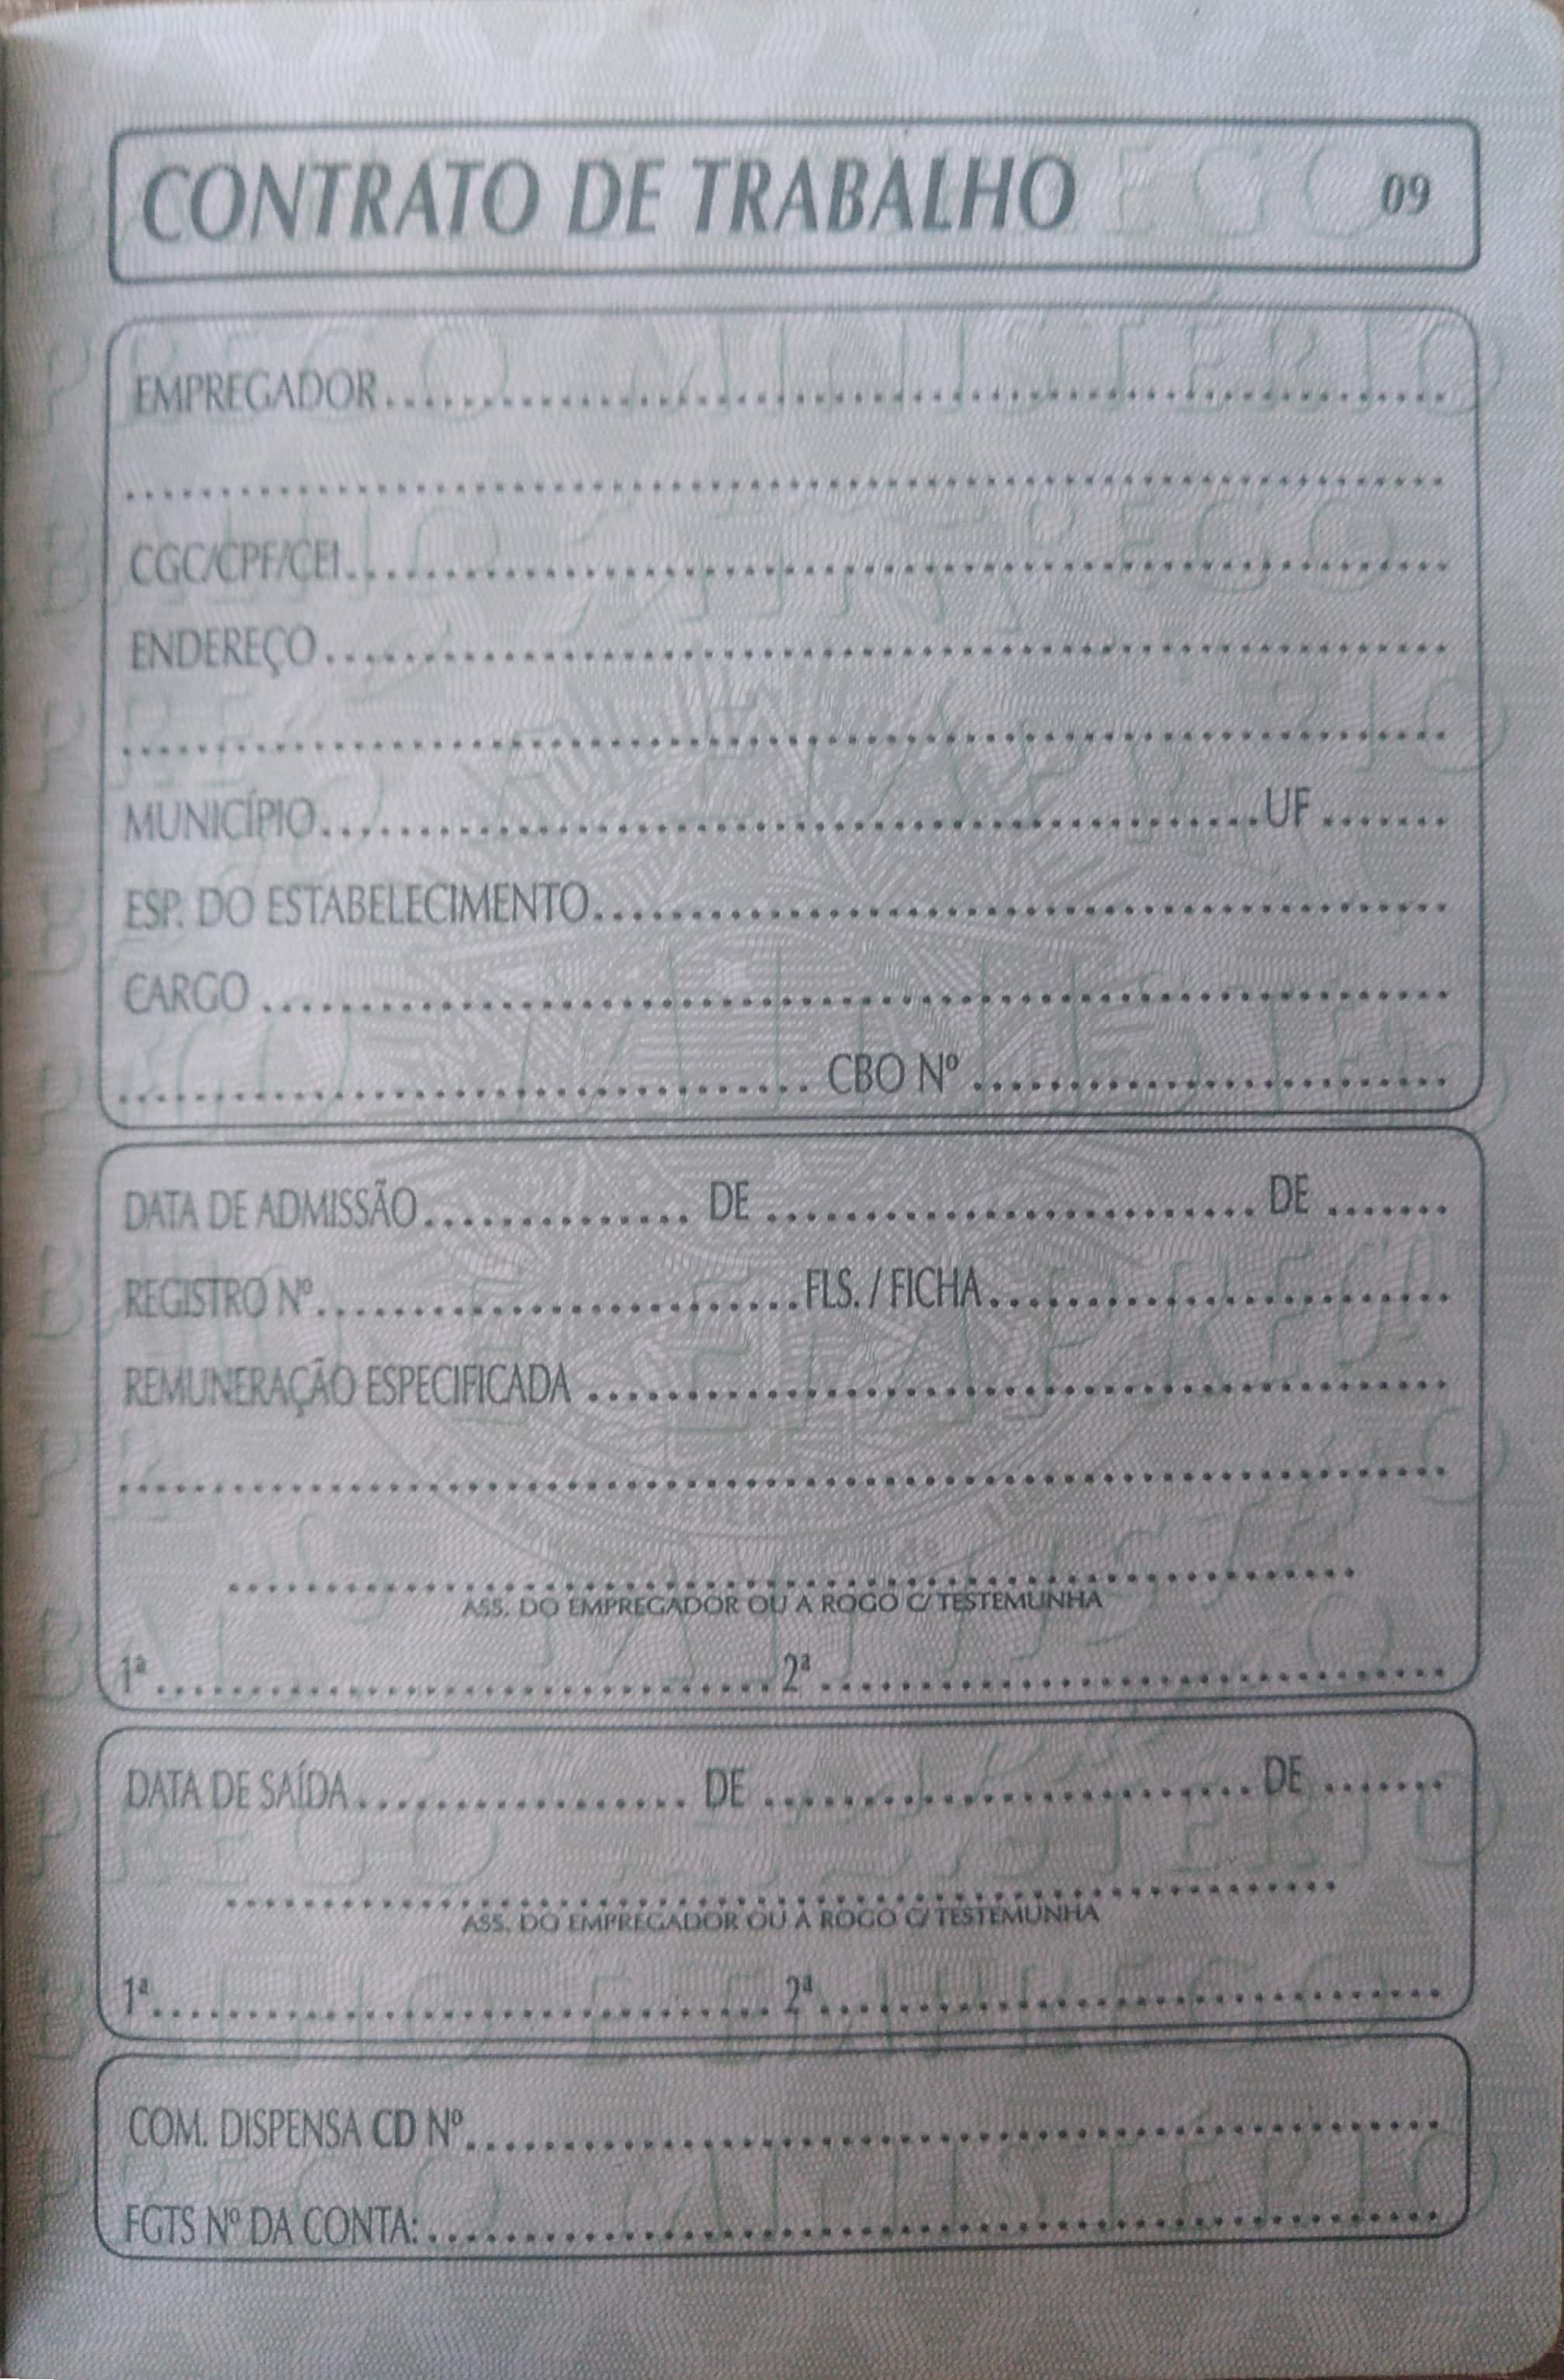 CONTRATO DE TRABALHO 09
EMPREGADOR
CGC/CPF/CEI
ENDEREÇO
MUNICÍPIO UF
ESP. DO ESTABELECIMENTO
CARGO
CBO Nº
DATA DE ADMISSÃO DE DE
REGISTRO Nº FLS. / FICHA
REMUNERAÇÃO ESPECIFICADA
ASS. DO EMPREGADOR OU A ROGO C/ TESTEMUNHA
1ª 2ª
DATA DE SAÍDA DE DE
ASS. DO EMPREGADOR OU A ROGO C/ TESTEMUNHA
1ª 2ª
COM. DISPENSA CD Nº
FGTS Nº DA CONTA: